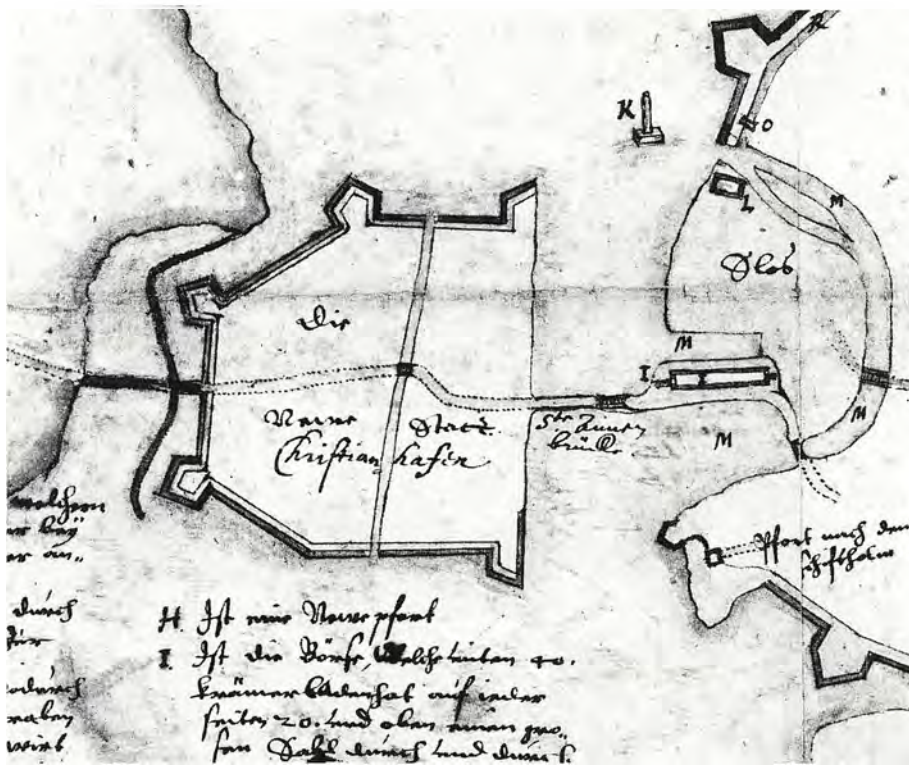 R
K
O
L
M
Slos
Die
M
I
M
Newe Statt
Christian hafen
Ste Annen
brück
M
Pfort nach dem
welchem
er
er an„
durch
H Ist eine Newe pfort
I Ist die Börse, Welche unten 40.
krämer laden hat auf ieder
seiten 20. und oben einen gro„
sen Sahl durch und durch.